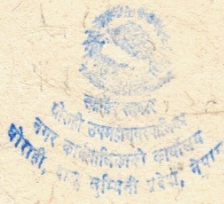 घोराही उपमहानगरपालिका
नगर कार्यपालिकाको कार्यालय
घोराही, दाङ लुम्बिनी प्रदेश, नेपाल